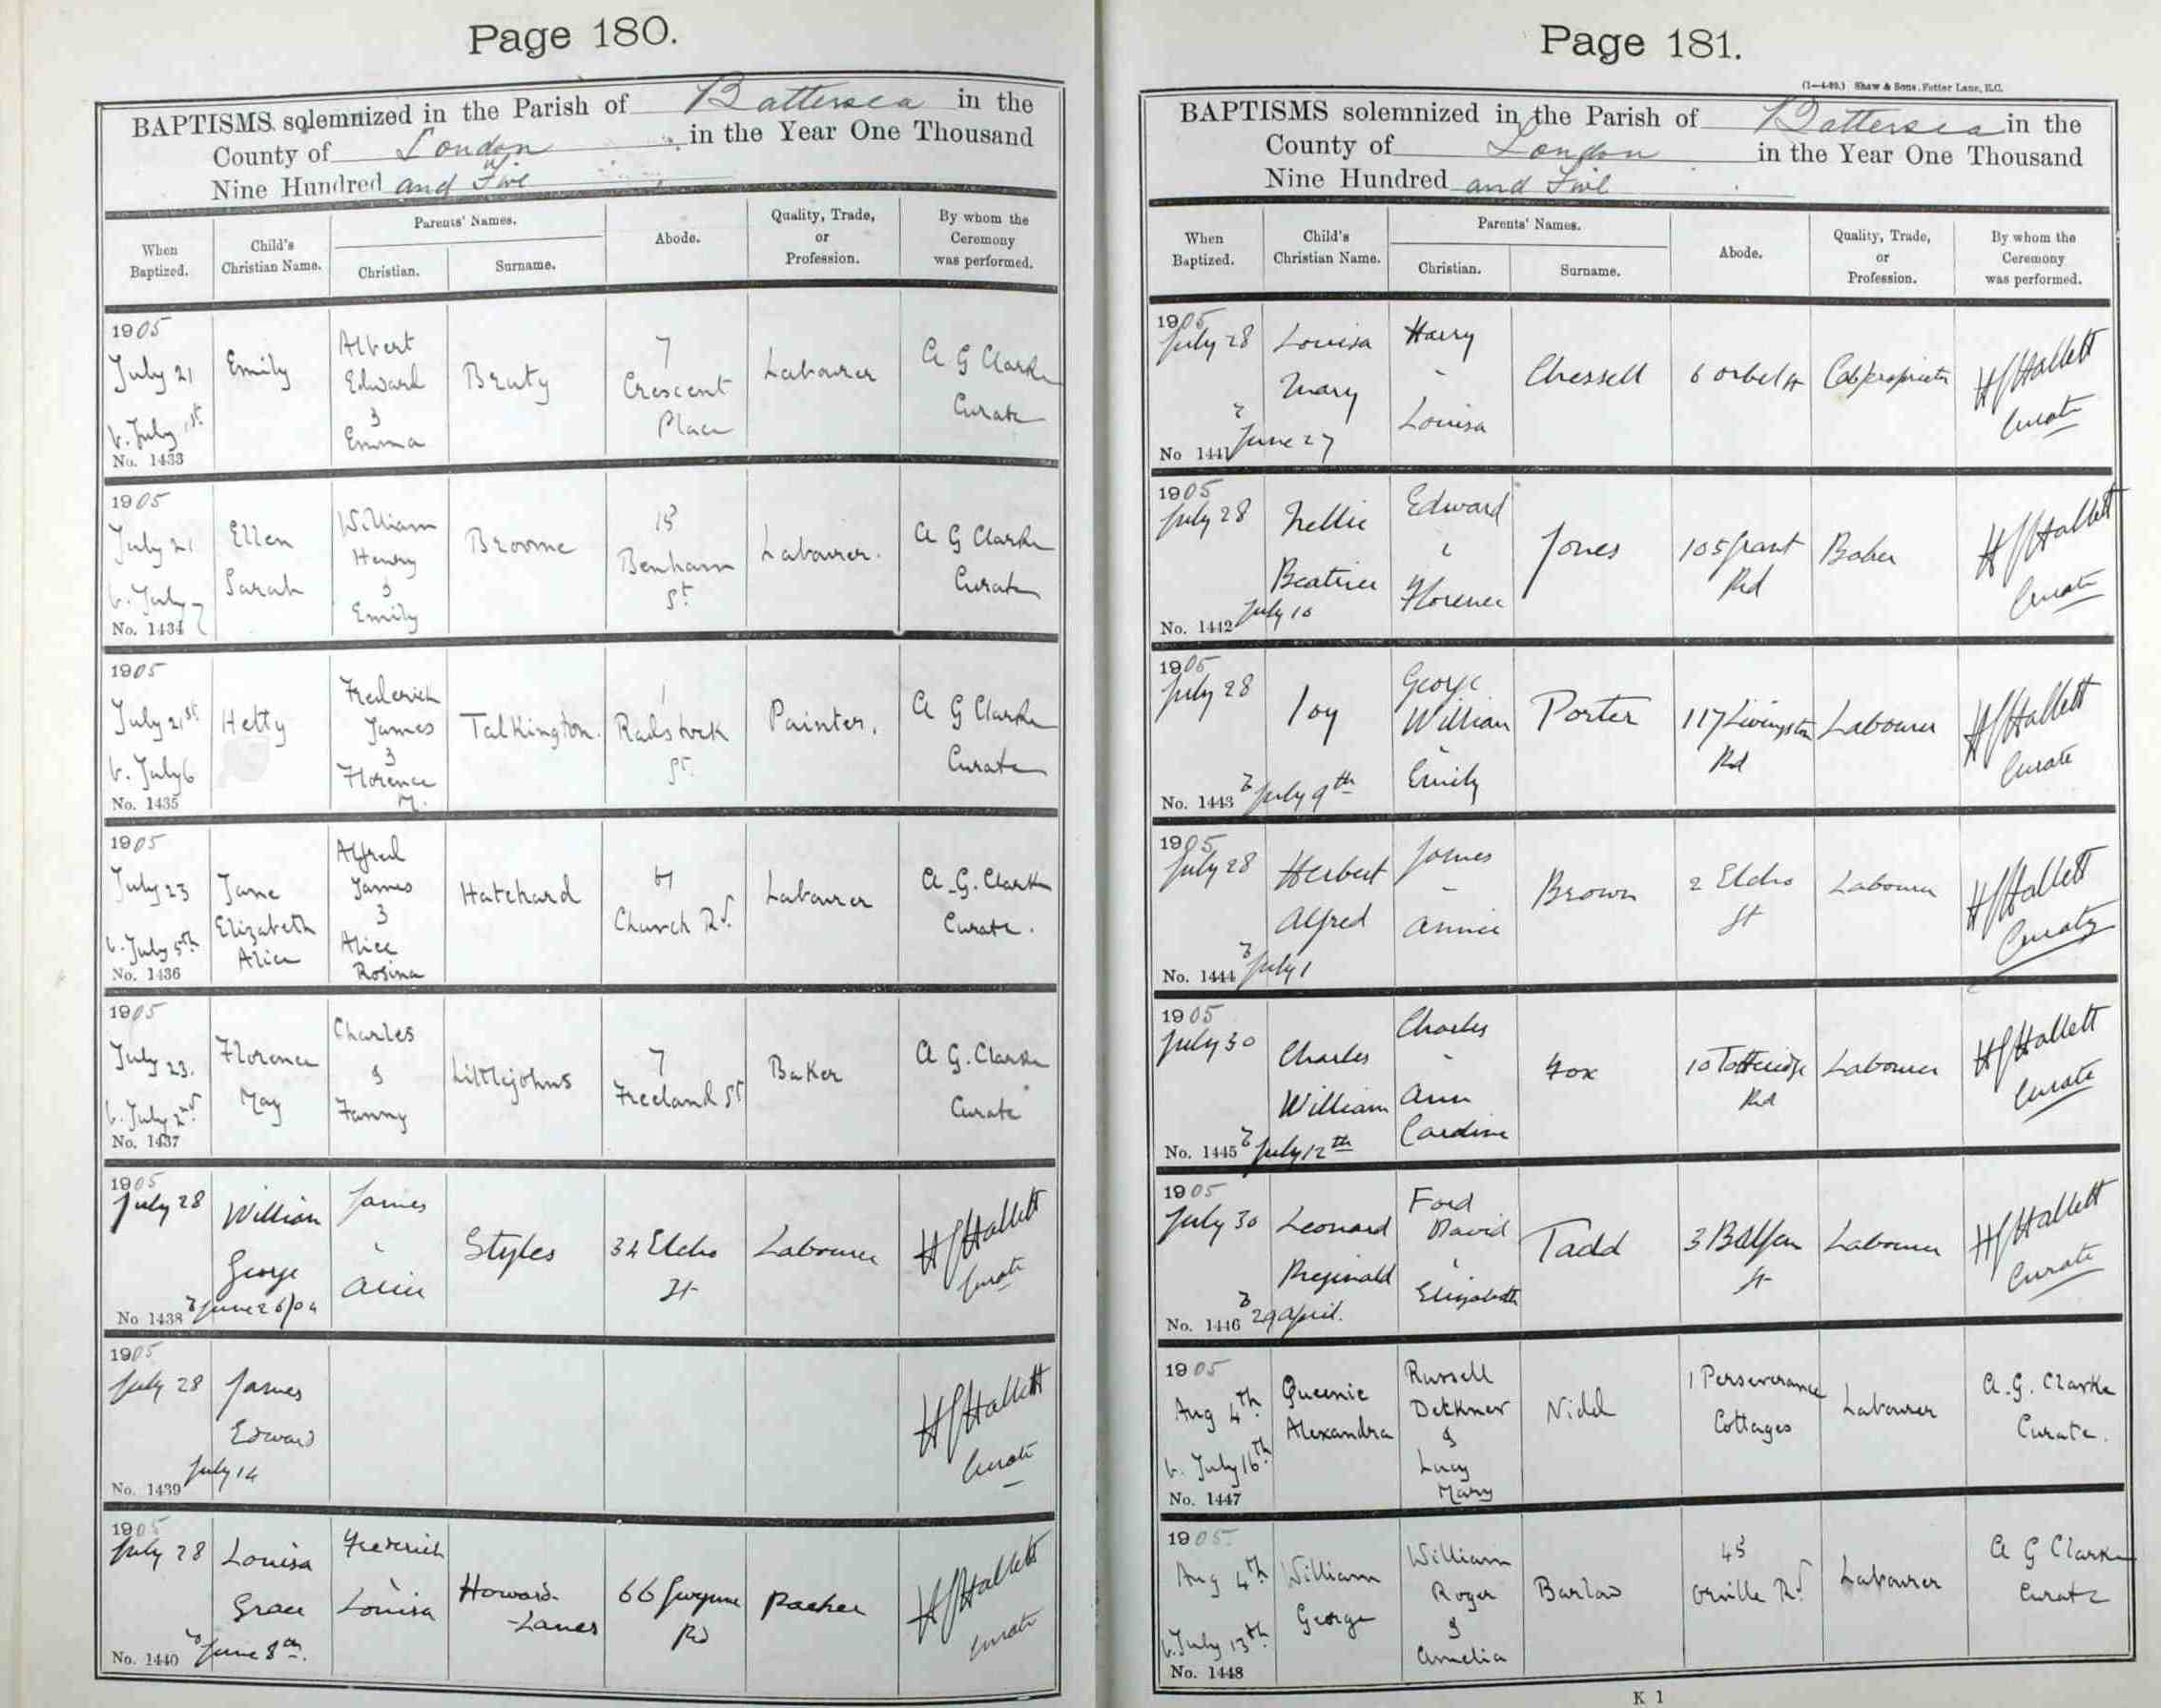 Page 180.
BAPTISMS solemnized in the Parish of Battersea in the
County of London in the Year One Thousand
Nine Hundred and Five
When Baptized.
Child's Christian Name.
Parents' Names.
Christian.
Surname.
Abode.
Quality, Trade, or Profession.
By whom the Ceremony was performed.
1905
July 21
b. July 1st
No. 1433
Emily
Albert
Edward
&
Emma
Bruty
7
Crescent
Place
Labourer
A G Clarke
Curate
1905
July 21
b. July 7
No. 1434
Ellen
Sarah
William
Henry
&
Emily
Broome
Benham
St
Labourer.
A G Clarke
Curate
1905
July 21st
b. July 6
No. 1435
Hetty
Frederick
James
&
Florence
M.
Talkington.
1
Radstock
St.
Painter.
A G Clarke
Curate
1905
July 23
b. July 5th
No. 1436
Jane
Elizabeth
Alice
Alfred
James
&
Alice
Rosina
Hatchard
Church Rd.
Labourer
A. G. Clarke
Curate.
1905
July 23.
b. July 2nd
No. 1437
Florence
May
Charles
&
Fanny
Littlejohns
7
Freeland St
Baker
A G. Clarke
Curate
1905
July 28
No 1438
William
George
James
Alice
Styles
34 Elcho
St
Labourer
H J Hallett
Curate
1905
July 28
July 14
No. 1439
James
Edward
H J Hallett
Curate
1905
July 28
b June 8th.
No. 1440
Louisa
Grace
Frederick
Louisa
Howard-
Lanes
66 Gwynne
Rd
Packer
H J Hallett
Curate
Page 181.
(1—4-99.) Shaw & Sons, Fetter Lane, E.C.
BAPTISMS solemnized in the Parish of Battersea in the
County of London in the Year One Thousand
Nine Hundred and Five
When Baptized.
Child's Christian Name.
Parents' Names.
Christian.
Surname.
Abode.
Quality, Trade, or Profession.
By whom the Ceremony was performed.
1905
July 28
b June 27
No 1441
Louisa
Mary
Harry
Louisa
Chessell
6 Orbel St
Cab proprietor
H J Hallett
Curate
1905
July 28
July 10
No. 1442
Nellie
Beatrice
Edward
Florence
Jones
105 Grant
Rd
Baker
H J Hallett
Curate
1905
July 28
b July 9th
No. 1443
Ivy
George
William
Emily
Porter
117 Livingston
Rd
Labourer
H J Hallett
Curate
1905
July 28
b July 1
No. 1444
Herbert
Alfred
James
Annie
Brown
2 Elcho
St
Labourer
H J Hallett
Curate
1905
July 30
b July 12th
No. 1445
Charles
William
Charles
Ann
Caroline
Fox
10 Totteridge
Rd
Labourer
H J Hallett
Curate
1905
July 30
b 29 April.
No. 1446
Leonard
Reginald
Ford
David
Elizabeth
Tadd
3 Balfern
St
Labourer
H J Hallett
Curate
1905
Aug 4th
b. July 16th
No. 1447
Queenie
Alexandra
Russell
Detkner
&
Lucy
Mary
Nidd
1 Perseverance
Cottages
Labourer
A. G. Clarke
Curate.
1905
Aug 4th
b. July 13th
No. 1448
William
George
William
Roger
&
Amelia
Barlow
Orville Rd.
Labourer
A G Clarke
Curate
K 1